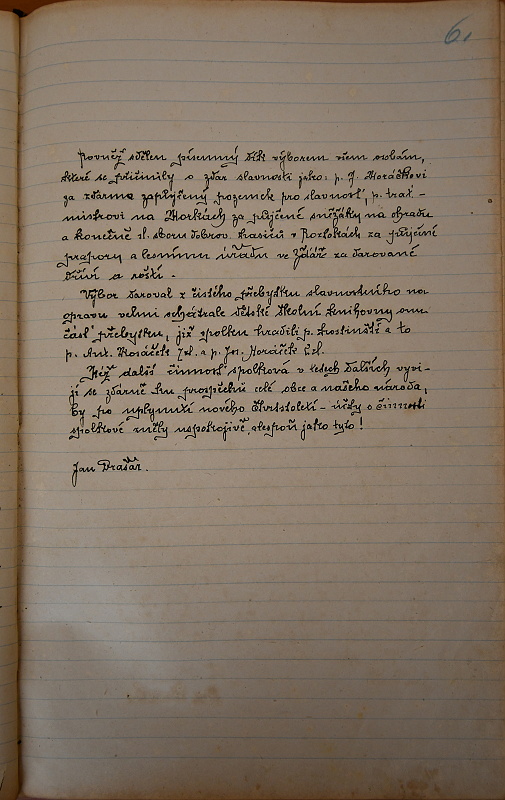 6.
Rovněž sdělen písemný dík výborem všem osobám,
které se přičinily o zdar slavnosti jako: p. J. Horáčkovi
za zdarma zapůjčený pozemek pro slavnosť, p. trať-
mistrovi na Horkách za půjčené sněžáky na ohradu
a konečně sl. sboru dobrov. hasičů v Roztokách za půjčení
praporu a lesnímu úřadu ve Ždáře za darované
dříví a roští.
Výbor daroval z čistého přebytku slavnostního na
opravu velmi sešátrale dětské školní knihovny onu
část přebytku, již spolku hradili p. hostinští a to
p. Ant. Horáček 7zl. a p. Jos. Horáček
Kéž další činnosť spolková v letech dalších vyví-
jí se zdárně ku prospěchu celé obce a našeho národa,
by po uplynutí nového čtvrtstoletí – účty o činnosti
spolkové zněly uspokojivě, alespoň jako tyto!
Jan Drašar.